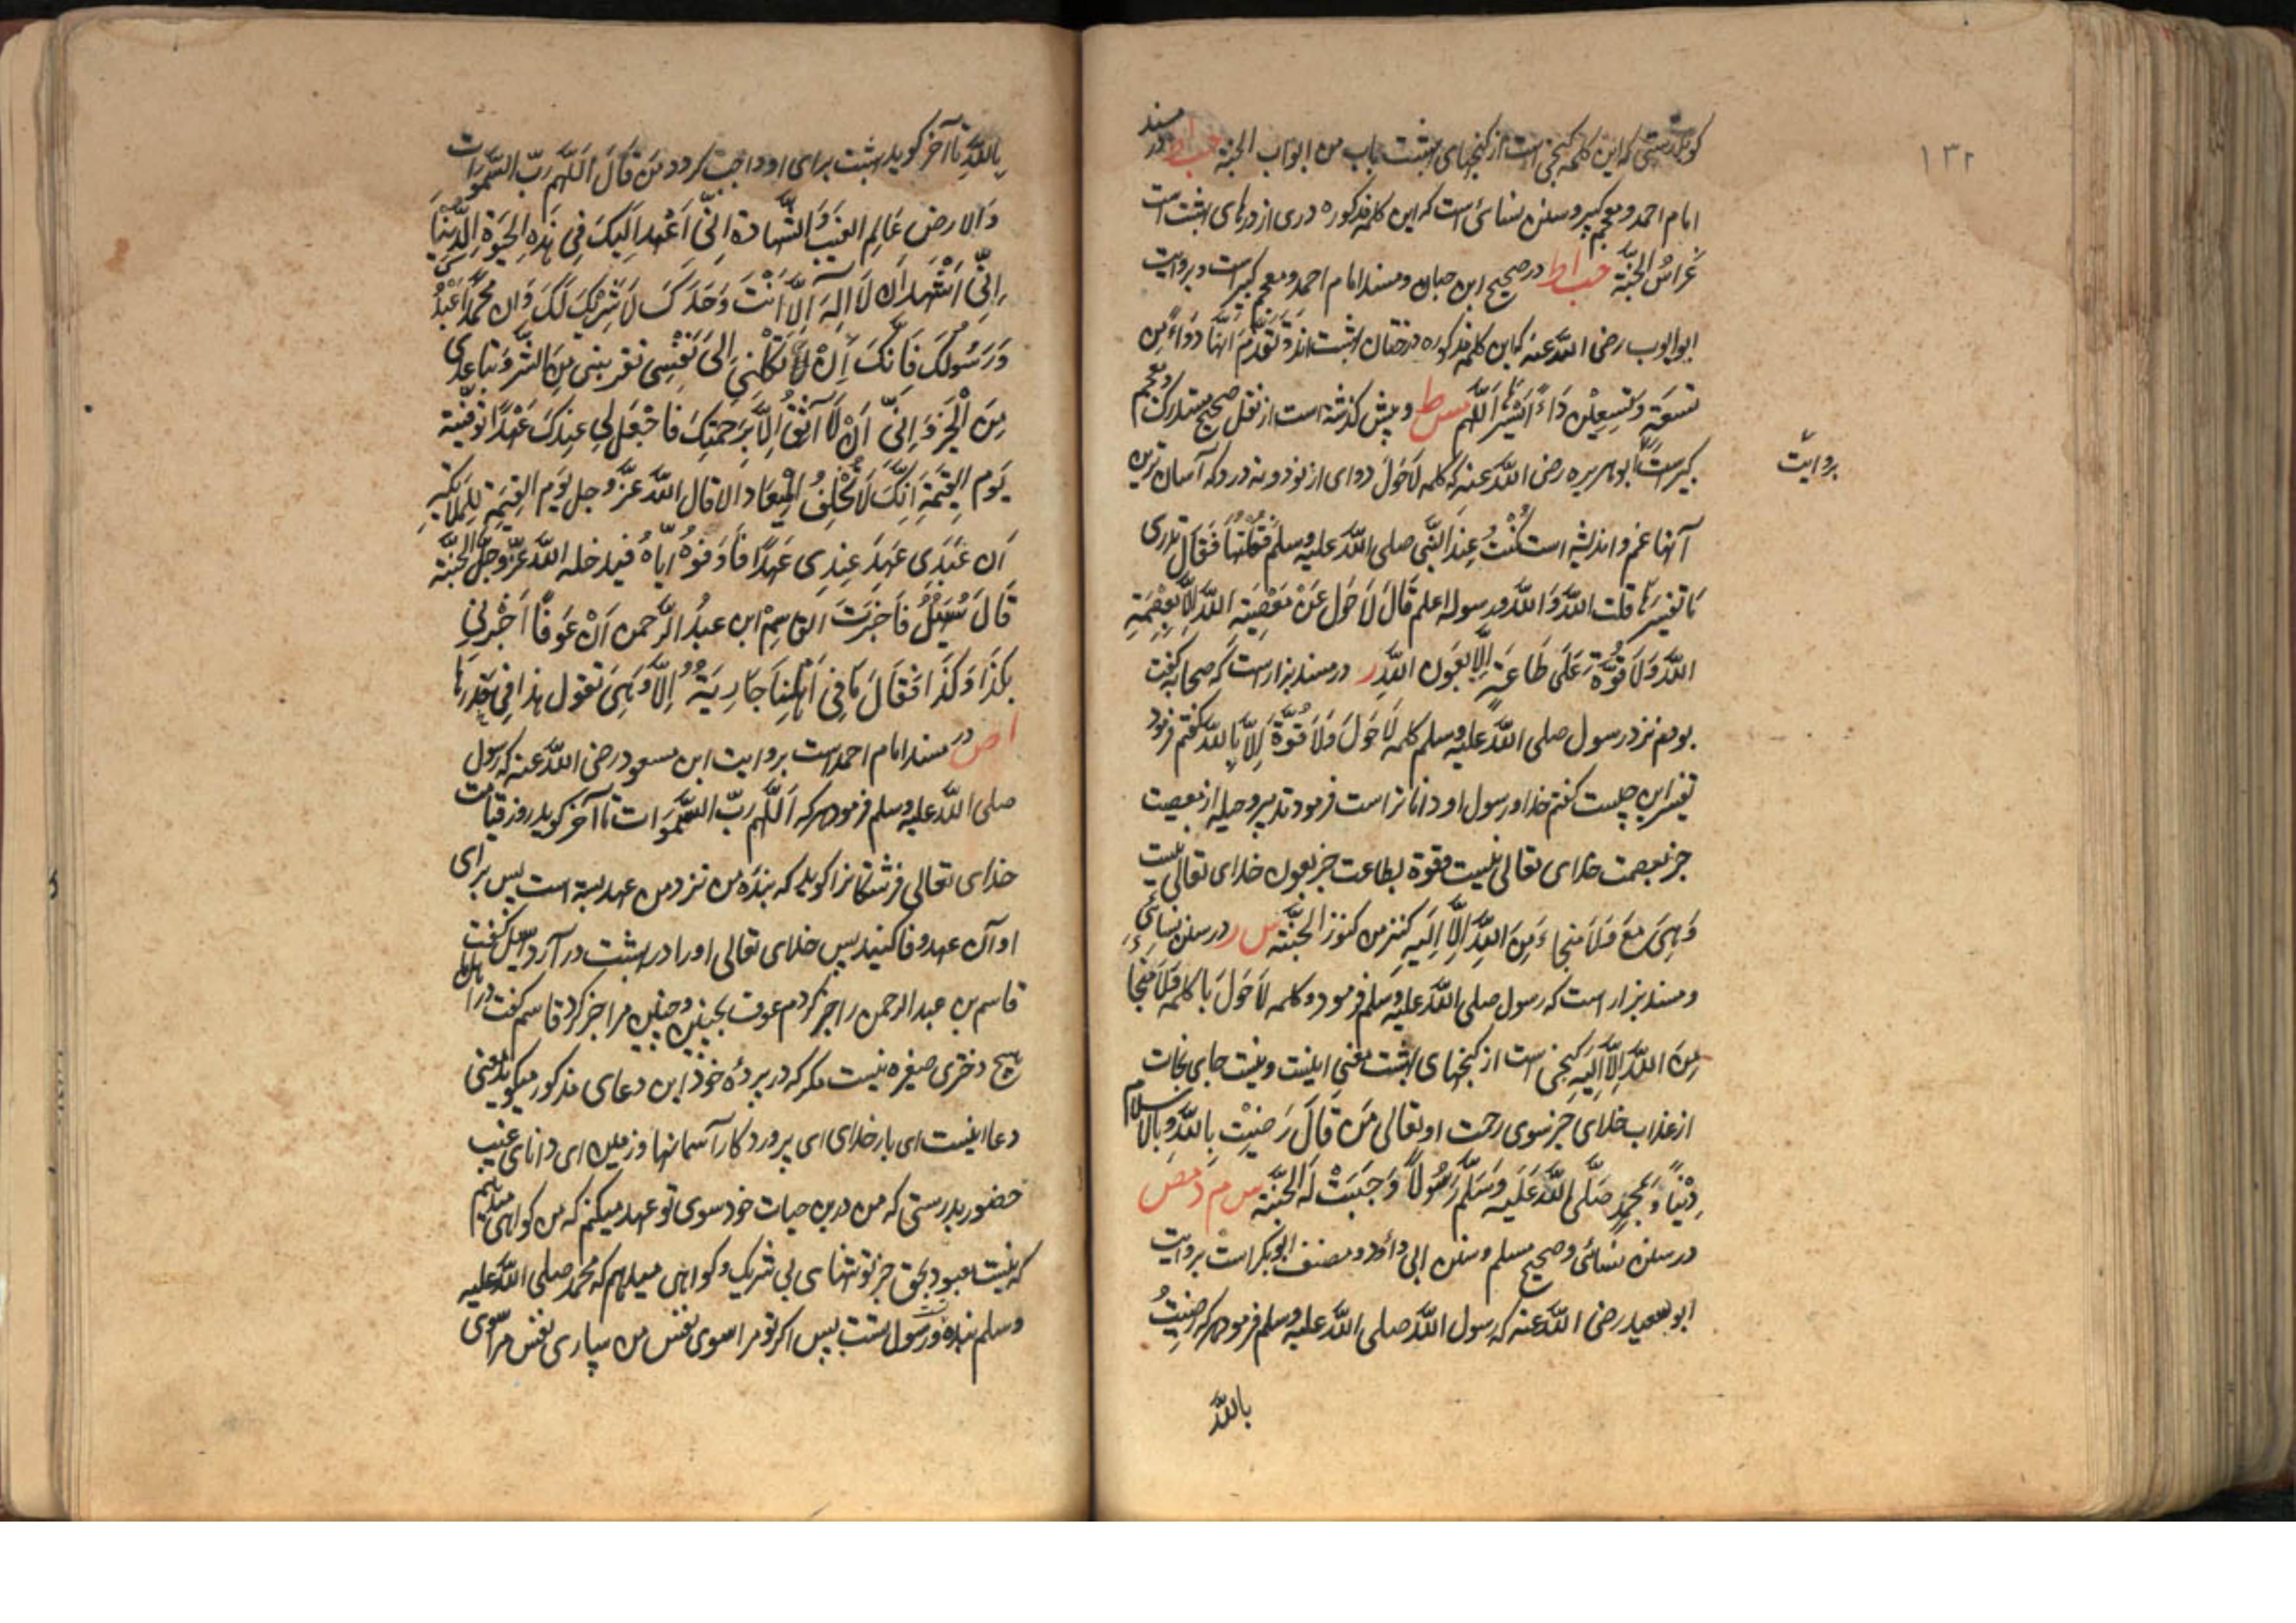 ۱۳۲
کویدبدرستی که این کلمه کنجی است از کنجهای بهشت باب من ابواب الجنة حب اط در مسند
امام احمد و معجم کبیر و سنن نسائی است که این کلمه مذکوره دری از درهای بهشت است
غِراسُ الجنّة حب اط در صحیح ابن حبان و مسند امام احمد و معجم کبیر است و بروایت
ابو ایوب رضی اللّه عنه که این کلمه مذکوره درختان بهشت اند وَتَقَدَّمَ اَنّها دَوَاءٌ مِن
تِسعَةٍ وَتِسعِیْنَ دَاءً اَیْسَرُهَا اَلْهَمّ مس ط و پیش کذشته است از نقل صحیح مستدرک و معجم
کبیر است ابو هریره رضی اللّه عنه که کلمه لَاحَولَ دوای از نود و نه درد که آسان ترین
بروایت
آنها غم و اندیشه است کُنْتُ عِندَ النَّبی صلی اللّه علیه وسلم فَقُلْتُهَا فَقَالَ تَدْری
مَا تفسیرُهَا قلت اللّه وَ رسوله اعلم قَالَ لَاحَولَ عَنْ مَعْصِیَةِ اللّه اِلّا بِعِصْمَةِ
اللّه وَلَا قُوَّةَ عَلَی طَاعَةٍ اِلَّا بِعَونِ اللّه ر در مسند بزار است که صحابه کفت
بودم نزد رسول صلی اللّه علیه وسلم کلمه لَاحَولَ وَلَا قُوَّةَ اِلَّا بِاللّه کفتم فرمود
تفسیر این چیست کفتم خدا و رسول او داناتر است فرمود تدبیر و حیله از معصیت
جز بعصمت خدای تعالی نیست و قوة بطاعت جز بعون خدای تعالی نیست
وَهِیَ مَعَ وَلَا مَنجاءَ مِنَ اللّهِ اِلَّا اِلَیهِ کنز من کنوز الجنّة س ر در سنن نسائی
و مسند بزار است که رسول صلی اللّه علیه وسلم فرمود و کلمه لَاحَولَ با کلمه وَلَا مَنجَا
مِنَ اللّه اِلَّا اِلَیهِ کنجی است از کنجهای بهشت معنی اینست و نیست جای نجات
از عذاب خدای جز سوی رحمت او تعالی مَن قَالَ رَضِیْت بِاللّه وَ بِالاسلام
دِیْنًا وَ بِمحمدٍ صَلَّی اللّه عَلَیه وَسَلَّم رَسُولًا وَجَبَتْ لَهُ الجنّة س م د مص
در سنن نسائی و صحیح مسلم و سنن ابی داؤد و مصنف ابو بکر است بروایت
ابو سعید رضی اللّه عنه که رسول اللّه صلی اللّه علیه وسلم فرمود هر که رضیتُ
باللّه
بِاللّهِ تا آخر کوید بهشت برای او واجب کردد مَن قَالَ اَللّهم رَبّ السّموات
وَالارض عَالِمَ الغَیْب وَالشّهادة اِنّی اَعْهَد اِلَیکَ فِی هَذِهِ الحَیوةِ الدّنیا
اِنّی اَشْهَد اَن لَا اِلهَ اِلَّا اَنْتَ وَحدَکَ لَا شَرِیْکَ لَکَ وَاَنّ محمّدًا عَبْدُکَ
وَ رَسُولُکَ فَاِنّکَ اِنْ تَکِلْنِی اِلَی نَفْسِی تقربنی مِنَ الشّرّ وتباعدنی
مِنَ الْخَیر وَ اِنّی اَنْ لَا اَثِقُ اِلَّا بِرَحمتِکَ فَاجْعَل لِی عِندَکَ عَهْدًا تُوَفِّیْنِیه
یَومَ القِیٰمَةِ اِنّکَ لَا تُخْلِفُ المِیْعاد الا قال اللّه عزّ وجل یَومَ القِیٰمَةِ لِلمَلائِکةِ
اَن عَبْدِی عَهِدَ عِنْدِی عَهْدًا فَاَوفُوهُ اِیّاهُ فیدخله اللّه عَزّ وجلّ الجنّة
قَالَ سُهَیْلٌ فَاَخبَرتُ القاسِمَ ابن عبدِ الرّحمن اَنّ عَوفًا اَخْبَرَنِی
بِکَذَا وَکَذَا فقَالَ مَا فِی اَهلِنَا جَارِیَةٌ اِلَّا وَهِیَ تَقول هذا فِی خِدرِهَا
ا ص در مسند امام احمد است بروایت ابن مسعود رضی اللّه عنه که رسول
صلی اللّه علیه وسلم فرمود هر که اَللّهم رَبّ السّموات تا آخر کوید روز قیامت
خدای تعالی فرشتکانرا کوید که بنده من نزد من عهد بسته است پس برای
او آن عهد وفا کنید پس خدای تعالی او را در بهشت در آرد سهیل کفت
قاسم بن عبدالرحمن را خبر کردم عوف بچنین و چنین مرا خبر کرد قاسم کفت در اهل ما
هیچ دختری صغیره نیست مکر که در پردهٔ خود این دعای مذکور میکوید معنی
دعا اینست ای بار خدای ای پروردکار آسمانها و زمین ای دانای غیب
حضور بدرستی که من درین حیات خود سوی تو عهد میکنم که من کواهی میدهم
که نیست معبود بحق جز تو تنهای بی شریک و کواهی میدهم که محمد صلی اللّه علیه
وسلم بنده و رسول تست پس اکر تو مرا سوی نفس من سپاری نفس مرا سوی